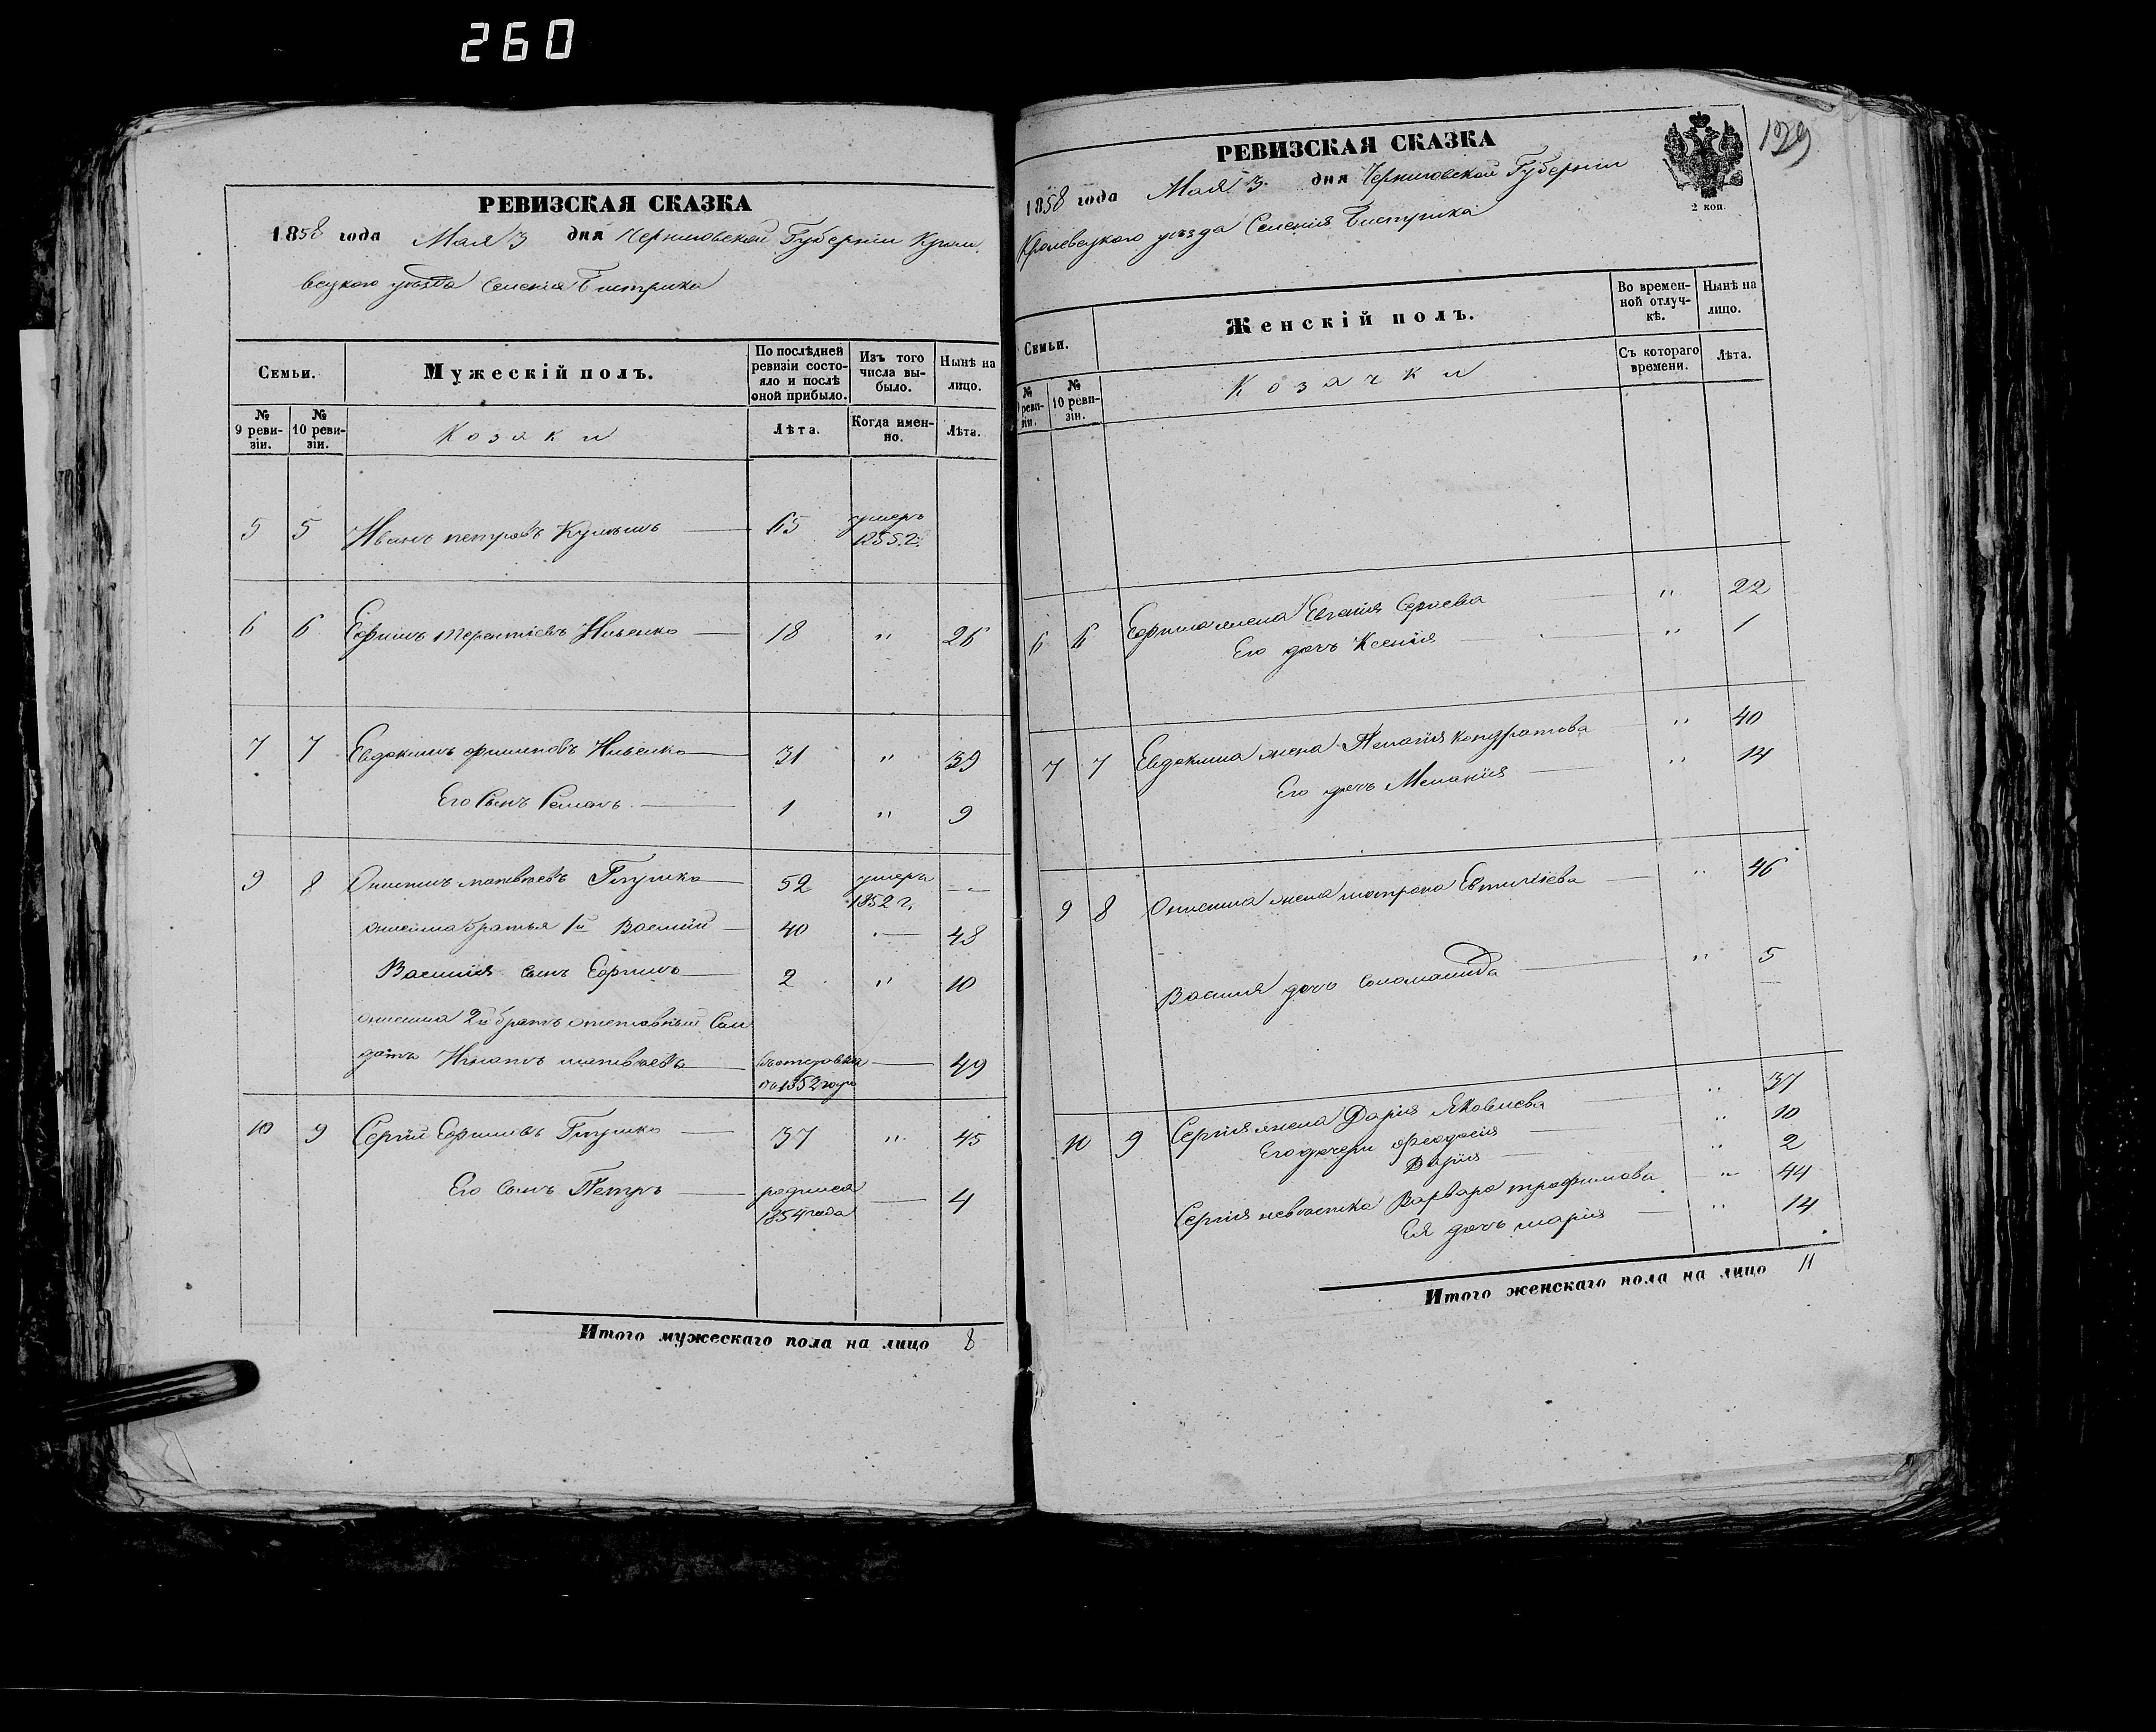 260
РЕВИЗСКАЯ СКАЗКА
1858 года Мая 3 дня Черниговской Губерніи Кроле
вецкого уезда Селенія Бистрика
Семьи.
Мужескій полъ.
По послѣдней ревизіи состояло и послѣ оной прибыло.
Изъ того числа выбыло.
Нынѣ на лицо.
№ 9 ревизіи.
№ 10 ревизіи.
Козаки
Лѣта.
Когда именно.
Лѣта.
5 5 Иванъ петровъ 65 умеръ 1855 г.
6 6 Ефимъ терентіевъ 18 " 26
7 7 Евдокимъ филиповъ 31 " 39
Его Сынъ Романъ 1 " 9
9 8 Онисимъ матвѣевъ Глушко 52 умеръ 1852 г. --
онисима братья 1й Василій 40 — 48
Василія сынъ Ефимъ 2 " 10
онисима 2й братъ отставный Сол
датъ Игнатъ матвѣевъ 1852 года — 49
10 9 Сергій Ефимовъ Глушко 37 " 45
Его Сынъ Петръ родился 1854 года — 4
Итого мужескаго пола на лицо 8
РЕВИЗСКАЯ СКАЗКА
2 коп.
129
1858 года Мая 3 дня Черниговской Губерніи
Кролевецкого уезда Селенія Бистрика
Семьи.
Женскій полъ.
Во временной отлучкѣ.
Нынѣ на лицо.
№ 9 ревизіи.
№ 10 ревизіи.
Козачки
Съ котораго времени.
Лѣта.
6 6 Ефима жена Евгенія Сергіева " 22
Его дочь Ксенія " 1
7 7 Евдокима жена Пелагія кондратова " 40
Его дочь Меланія " 14
9 8 Онисима жена матрона Евтихіева " 46
Василія дочь Соломонида " 5
10 9 Сергія жена Дарія Яковлева " 37
Его дочери феодосія " 10
Дарія " 2
Сергія невѣстка Варвара трофимова " 44
Ея дочь марія " 14
Итого женскаго пола на лицо 11